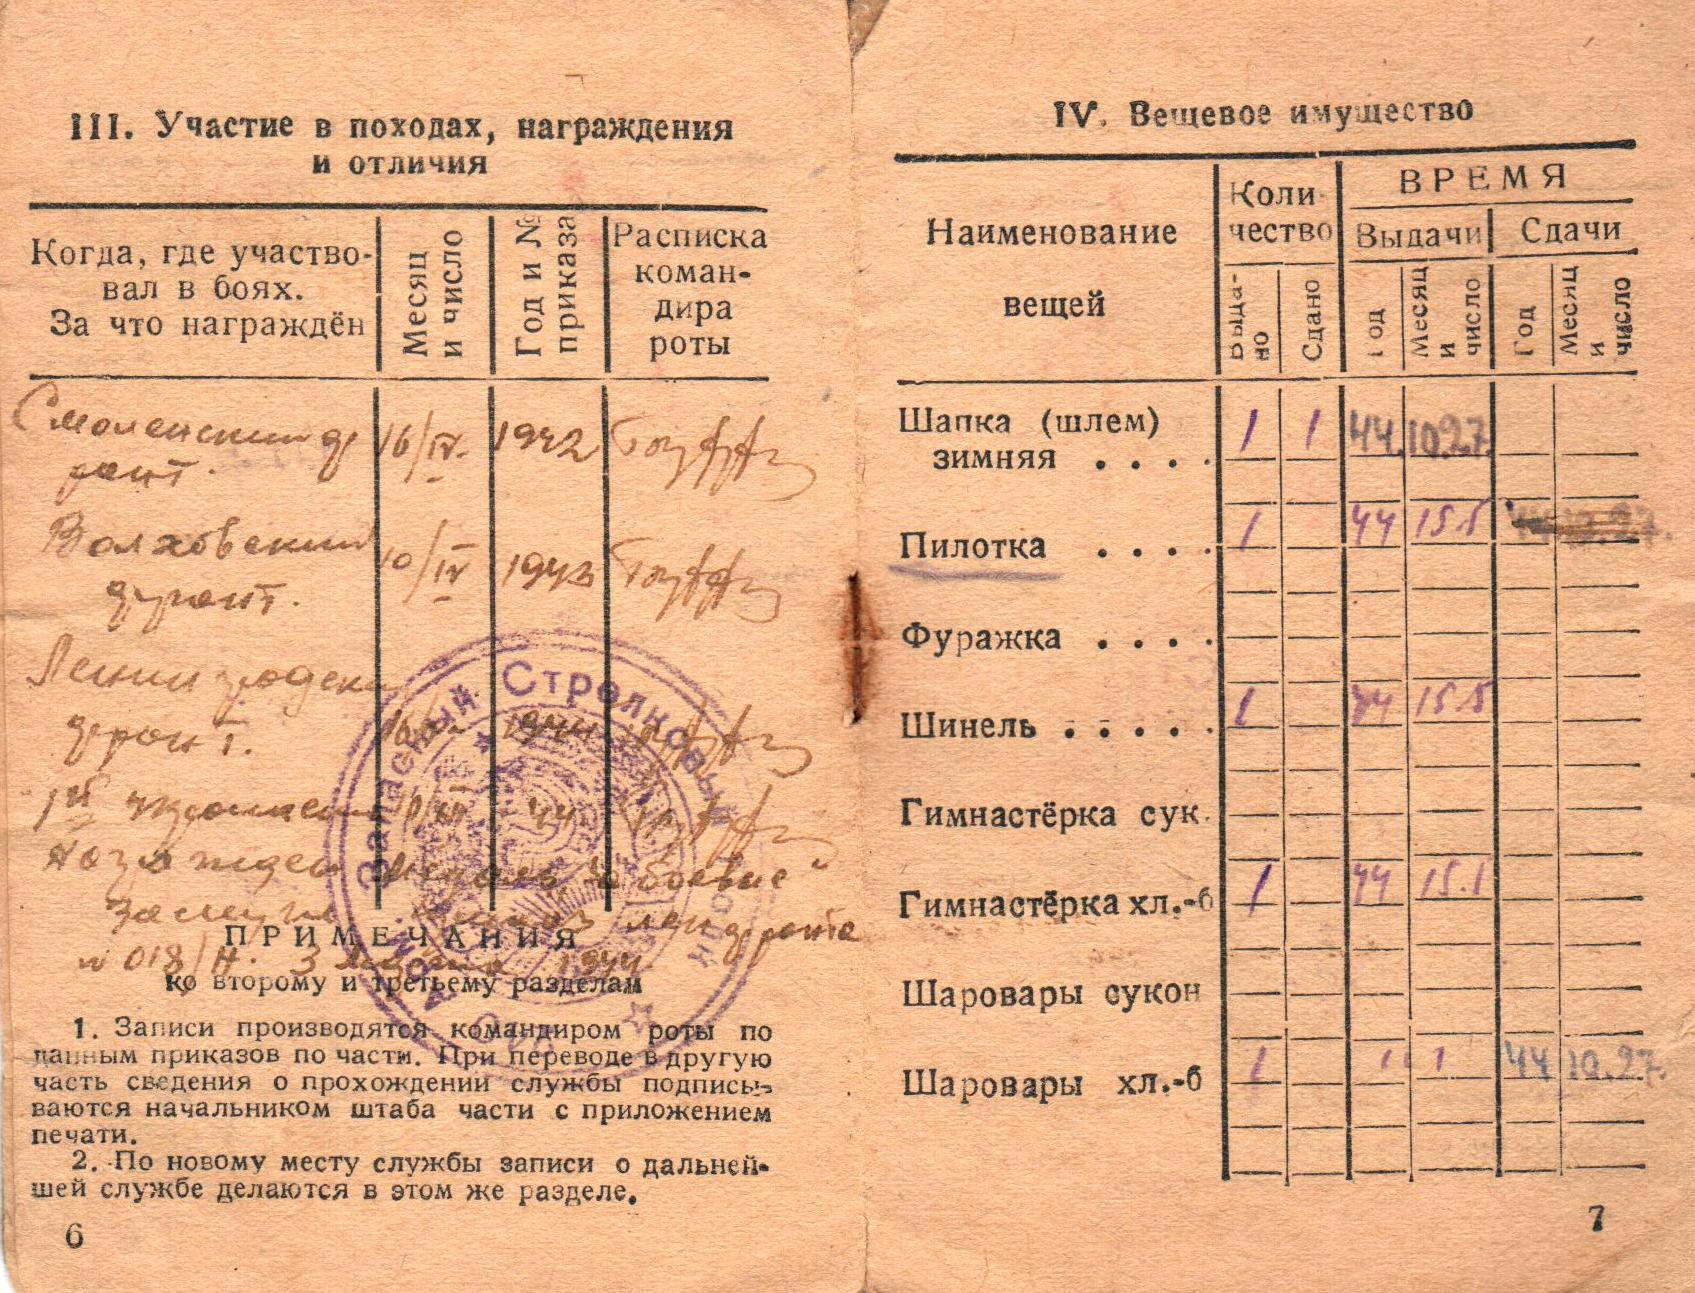 III. Участие в походах, награждения
и отличия
Когда, где участво-
вал в боях.
За что награждён
Месяц
и число
Год и №
приказа
Расписка
коман-
дира
роты
Смоленский ф
ронт. 16/IV. 1942
Волховский 10/IV 1943
фронт.
Ленинградский
фронт. 1944
1й Украинский 44
Награжден медаль За боевые
заслуги приказ лен фронта
№ 018/Н. 3 1944
Запасный Стрелковый
ПРИМЕЧАНИЯ
ко второму и третьему разделам
1. Записи производятся командиром роты по
данным приказов по части. При переводе в другую
часть сведения о прохождении службы подписы-
ваются начальником штаба части с приложением
печати.
2. По новому месту службы записи о дальней-
шей службе делаются в этом же разделе.
6
IV. Вещевое имущество
Наименование
вещей
Коли-
чество
Выда-
но
Сдано
ВРЕМЯ
Выдачи
Сдачи
Год
Месяц
и
число
Год
Месяц
и
число
Шапка (шлем) 1 1 44. 10.27.
зимняя . . . .
Пилотка . . . . 1 44 15.5
Фуражка . . . .
Шинель . . . . . 1 44 15.5
Гимнастёрка сук.
Гимнастёрка хл.-б 1 44 15.5
Шаровары сукон
Шаровары хл.-б 1 44 10.27.
7